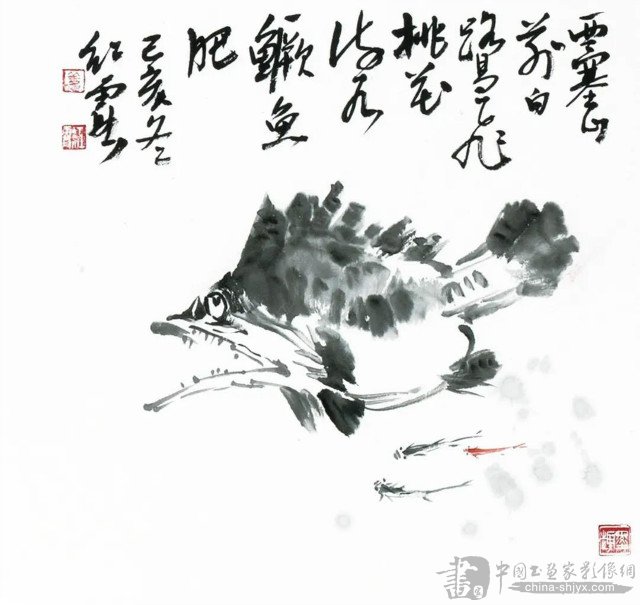 西塞山
前白
鹭飞
桃花
流水
鳜鱼
肥
己亥冬
書
中國书画家影像網
china-shjyx.com